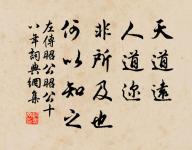 天道遠
人道迩
非所及也
何以知之
左傳昭公昭公十
八年詞典網集